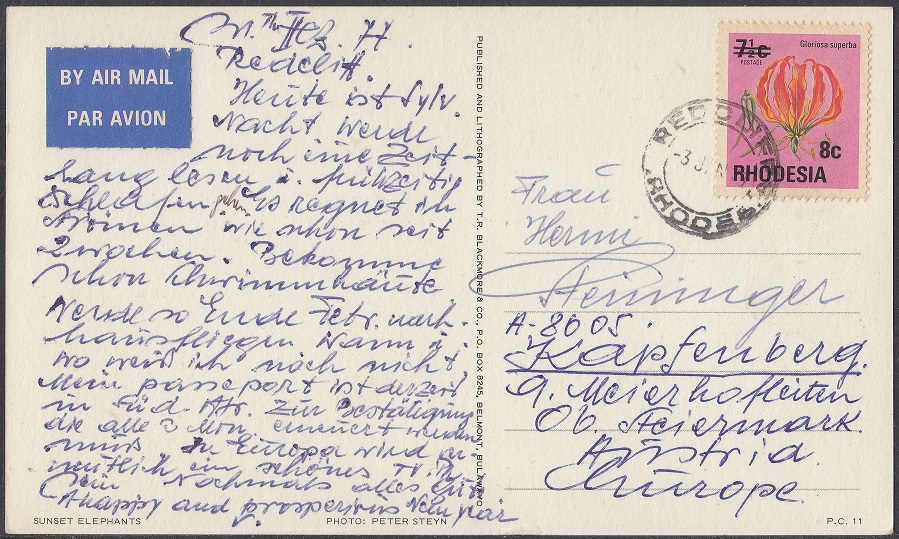 BY AIR MAIL
PAR AVION
Redcliff.
Heute ist Sylv.
Nacht werde
noch eine Zeit-
lang lesen u. frühzeitig
schlafen gehn. Es regnet in
Strömen wie schon seit
2 Wochen. Bekomme
schon Schwimmhäute
Werde so Ende Febr. nach-
hausfliegen wann u.
wo weis ich noch nicht,
Mein passeport ist derzeit
in Süd-Afr. zur Bestätigung
die alle 3 Mon. erneuert werden
muss. In Europa wird ver-
mutlich ein schönes TV. Pr.
sein Nochmals alles Gute
A happy and prosperius New year
SUNSET ELEPHANTS
PHOTO: PETER STEYN
P.C. 11
PUBLISHED AND LITHOGRAPHED BY T.R. BLACKMORE & CO., P.O. BOX 8245, BELMONT, BULAWAYO
7½c
POSTAGE
Gloriosa superba
8c
RHODESIA
REDCLIFF
RHODESIA
Frau
Hermi
Peininger
A-8605.
Kapfenberg.
Meierhofleiten
Ob. Steiermark.
Austria
Europe.